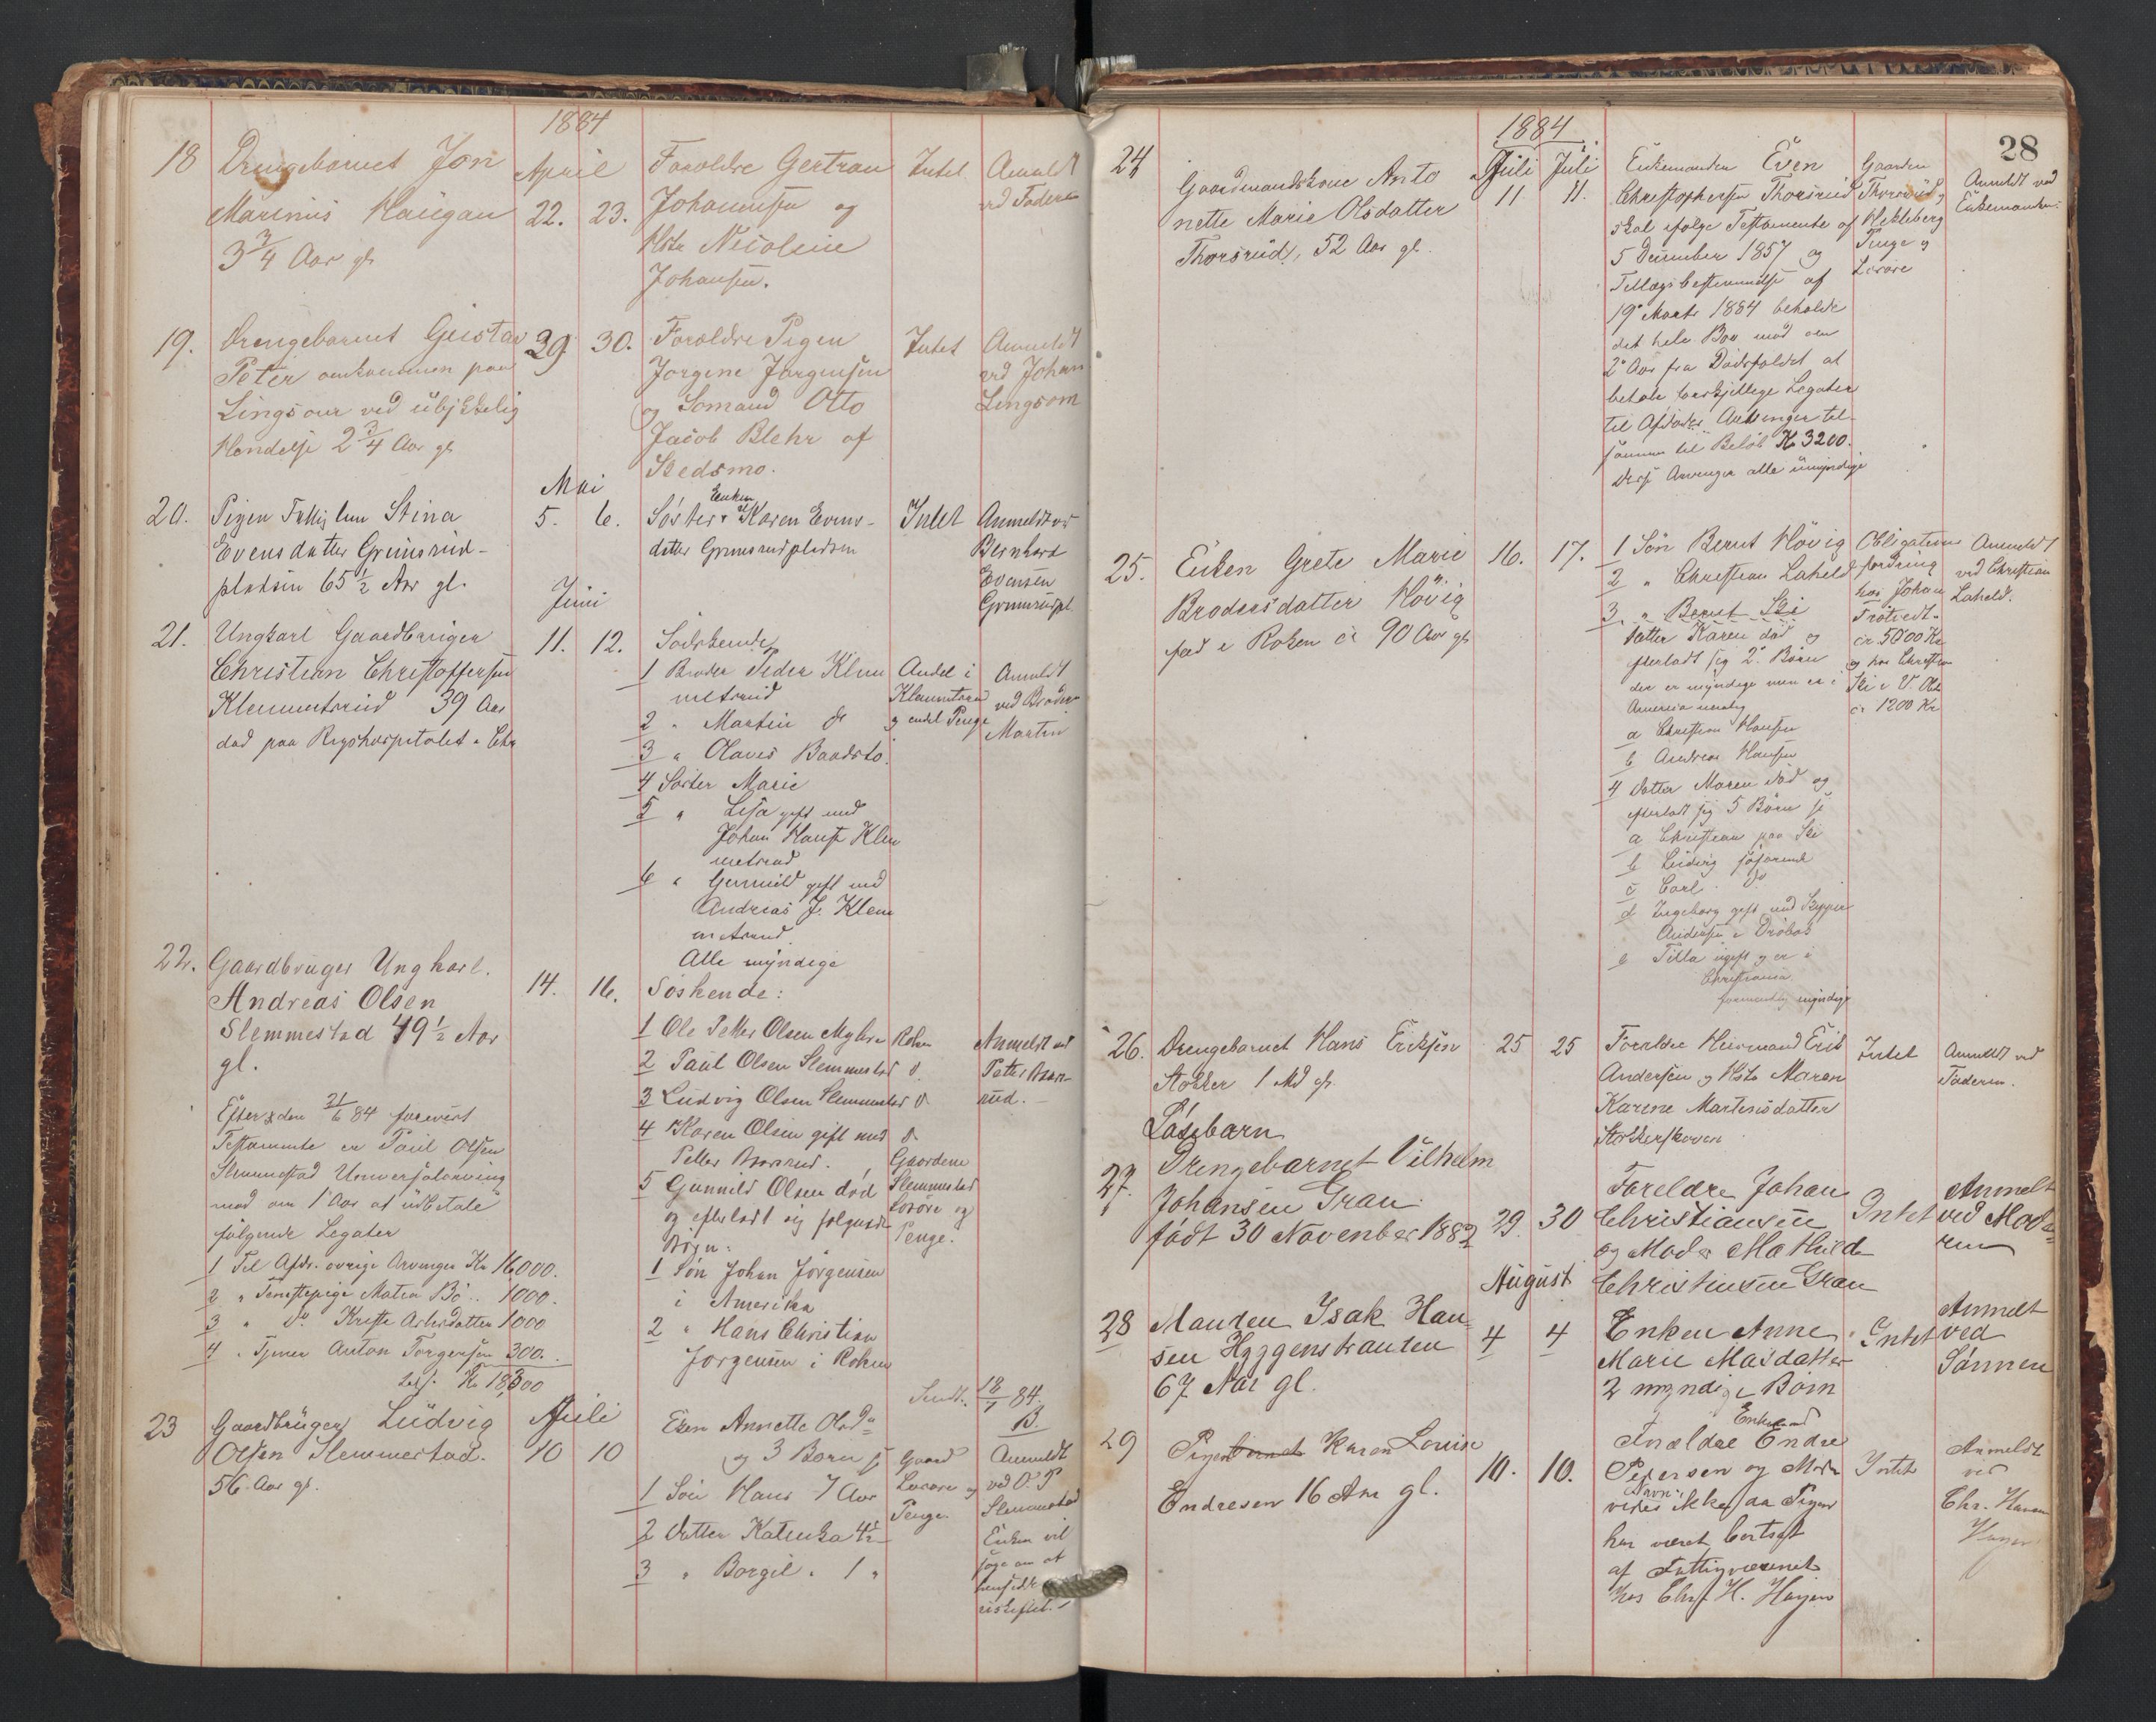 1884
18 Drengebarnet Jon
Marinius Haugan
3 3/4 Aar gl
April
22. 23.
Foroldre Gertran
Johannsen og
Hstr Nicoline
Johansen.
Intet
Anmeldt
ved Faderen
19. Drengebarnet Gustav
Peter omkommen paa
Lingsom ved ulykkelig
Hendelse 2 3/4 Aar gl
29. 30.
Foroldre Pigen
Jorgine Jorgensen
og Somand Otto
Jacob Blehr af
Skedsmo.
Intet
Anmeldt
ved Johan
Lingsom
Mai
20. Pigen Fattiglem Stina
Evensdatter Grimsrud-
pladsen 65 1/2 Aar gl.
5. 6.
Enken
Søster Karen Evens-
datter Grimsrudpladsen
Intet
Anmeldt ved
Bernhard
Evensen
Grimsrudpl.
Juni
21. Ungkarl Gaardbruger
Christian Christoffersen
Klemmetsrud 39 Aar
død paa Rigshospitalet i Chr
11. 12.
Sødskende
1 Broder Peder Klem
metsrud
2 " Martin do
3 " Olaves Baadstø.
4 Søster Marie
5 " Lisa gift med
Johan Hansen Klem
metsrud
6 " Gunnild gift med
Andreas J. Klem
metsrud
Alle myndige
Andel i
Klemmetsrud
og endel Penge
Anmeldt
ved Broder
Martin
22. Gaardbruger Ungkarl.
Andreas Olsen
Slemmestad 49 1/2 Aar
gl.
Efter den 21/6 84 forevist
Testamente er Paul Olsen
Slemmestad Universalarving
mod om 1 Aar at udbetale
følgende Legater
1 Til Afdr. øvrige Arvinger Kr 16000.
2 " Tjenestepige Matea Bö .. 1000.
3 " do Kristi Aslesdatter 1000
4 " Tjener Anton Torgersen 300.
Kr 18,300
14. 16.
Søskende:
1 Ole Petter Olsen Myhre
2 Paul Olsen Slemmestad
3 Ludvig Olsen Slemmestad
4 Karen Olsen gift med
Petter
5 Gunnild Olsen død
og efterladt sig følgende
Børn:
1 Søn Johan Jørgensen
i Amerika
2 " Hans Christian
Jørgensen i Røken
Røken
d.
d
d
Gaardene
Slemmestad
Løsøre og
Penge.
Anmeldt ved
Petter
rud.
Sendt. 18/7 84.
B.
23 Gaardbruger Ludvig
Olsen Slemmestad.
56 Aar gl.
Juli
10 10
Enken Annette Olsd
og 3 Børn
1 Søn Hans 7 Aar
2 Datter Katinka 4 1/2
3 " Borgil " 1 "
Gaard
Løsøre og
Penge
Anmeldt
ved O. P
Slemmestad
Enken vil
søge om at
hensidde
uskiftet.
28
1884
24 Gaardmandskone Anto
nette Marie Olsdatter
Thorsrud, 52 Aar gl.
Juli Juli
11 11.
Enkemanden Even
Christophersen Thorsrud
skal ifølge Testamente af
5 December 1857 og
Tillægsbestemmelse af
19 Marts 1884 beholde
det hele Bo mod om
2 Aar fra Dødsfaldet at
betale forskjellige Legater
til Afdødes Arvinger til-
sammen til Beløb Kr 3200.
Disse Arvinger alle umyndige
Gaarden
Thorsrud og
Hekleberg
Penge og
Løsøre
Anmeldt ved
Enkemanden.
25. Enken Grete Marie
Brodersdatter Høvig
fød i Røken ca 90 Aar gl
16. 17.
1 Søn Bernt Høvig
2 " Christian Laheld
3 " Bernt Ski
Datter Karen død og
efterladt sig 2 Børn
der er myndige men er i
Amerika
a Christian Hansen
b Andreas Hansen
4 Datter Maren død og
efterladt sig 5 Børn
a Christian paa Ski
b Ludvig søfarende
c Carl do
d Ingeborg gift med Skipper
Andersen i Drøbak
e Tilla ugift og er i
Christiania
formentlig myndige
Obligations
fordring
hos Johan
Trotvedt
ca 5000 Kr
og hos Christian
Ski
ca 1200 Kr
Anmeldt
ved Christian
Laheld.
26. Drengebarnet Hans Eriksen
Stokker 1 Md gl.
25 25
Foreldre Husmand Erik
Andersen og Hstr Maren
Karine Martinsdatter
Stokkerskoven
Intet
Anmeldt ved
Faderen.
Løsebarn
27. Drengebarnet Vilhelm
Johansen Gran
født 30 November 1882
29. 30
Foreldre Johan
Christiansen
og Moder Mathilde
Christiansen Gran
Intet
Anmelt
ved Mode-
ren
August
28 Manden Isak Han-
sen Hyggenstranden
67 Aar gl.
4 4
Enken Anne
Marie Masdatter
2 myndige Børn
Intet
Anmelt
ved
Sønnen
29 Pigen barnet Karen Louise
Endresen 16 Aar gl.
10. 10.
Enkemand
Forældre Endre
Pedersen og Moder
Navn
vides ikke, da Pigen
har været bortsat
af Fattigvæsenet
hos Chrf H. Høyen
Intet
Anmeldt
ved
Chr. Hansen
Høyen